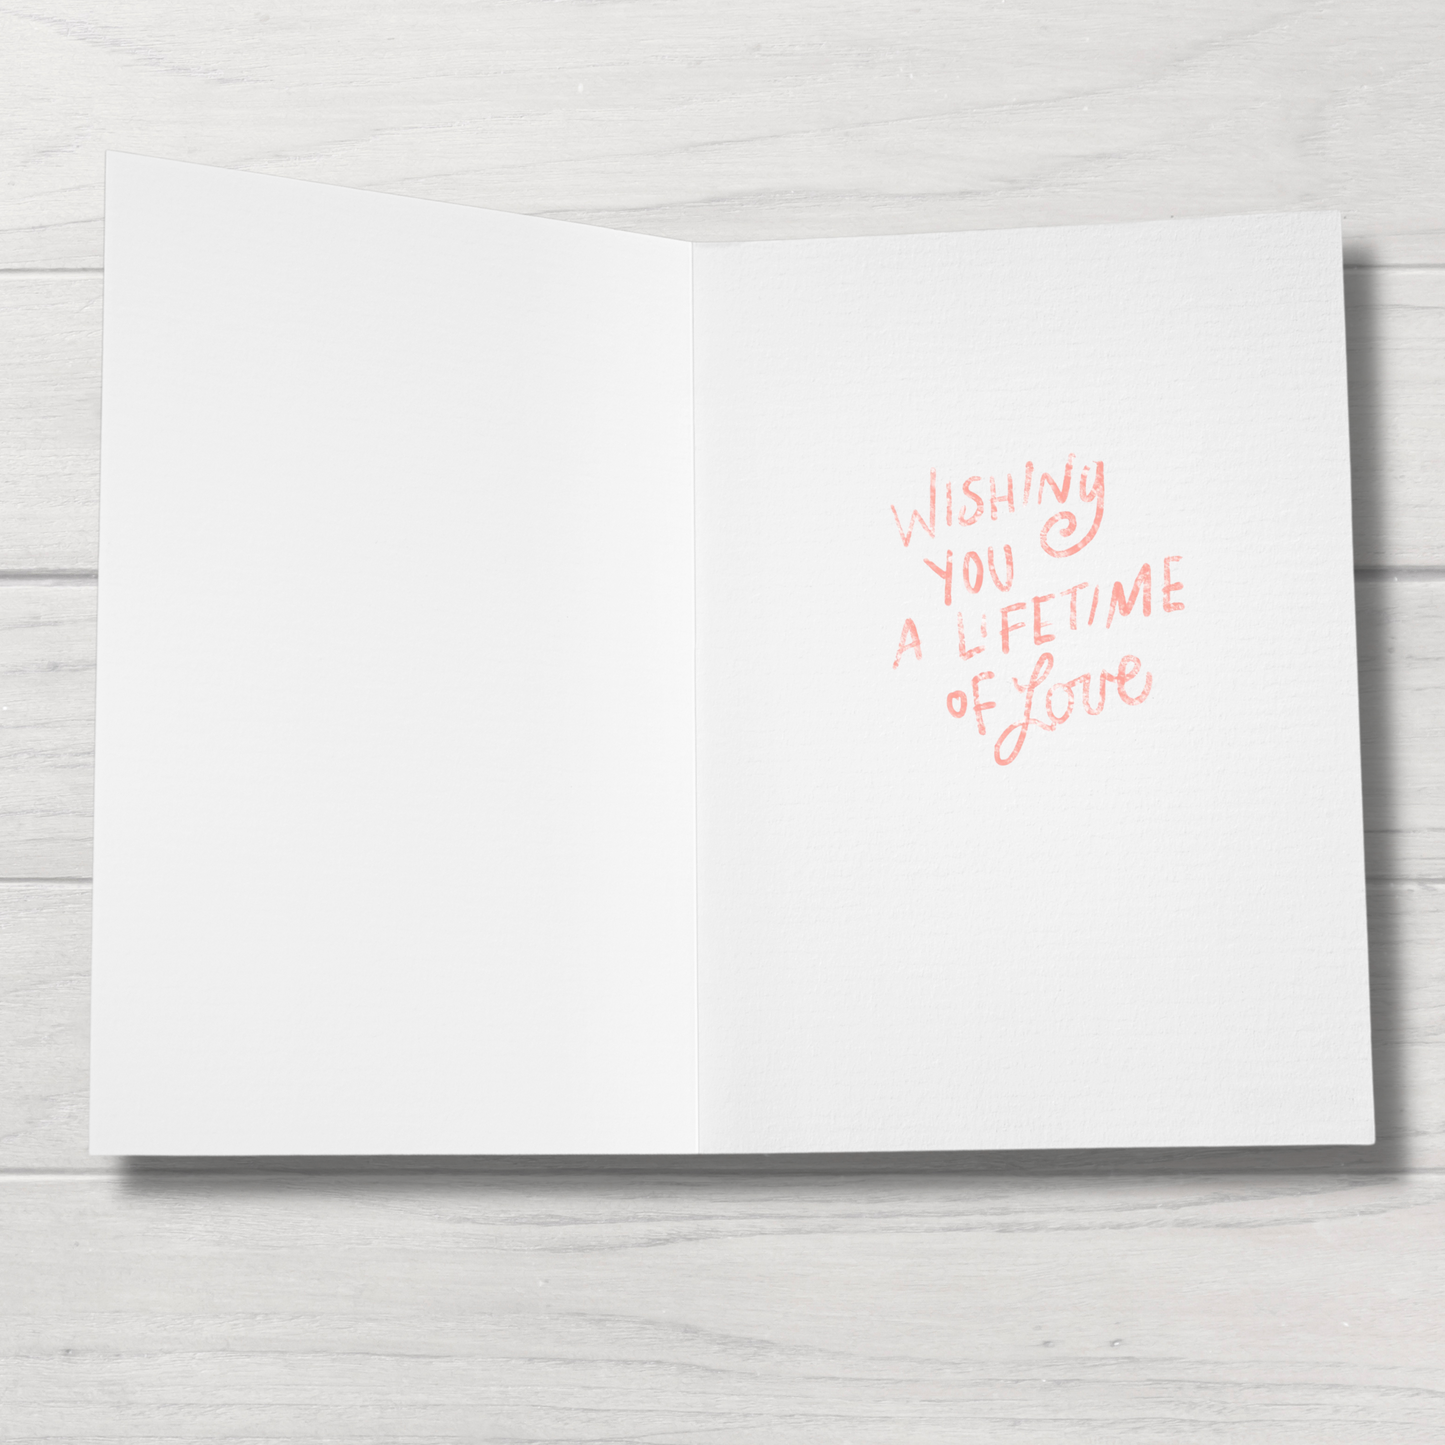 WISHINg
YOU
A LiFETIME
OF Love